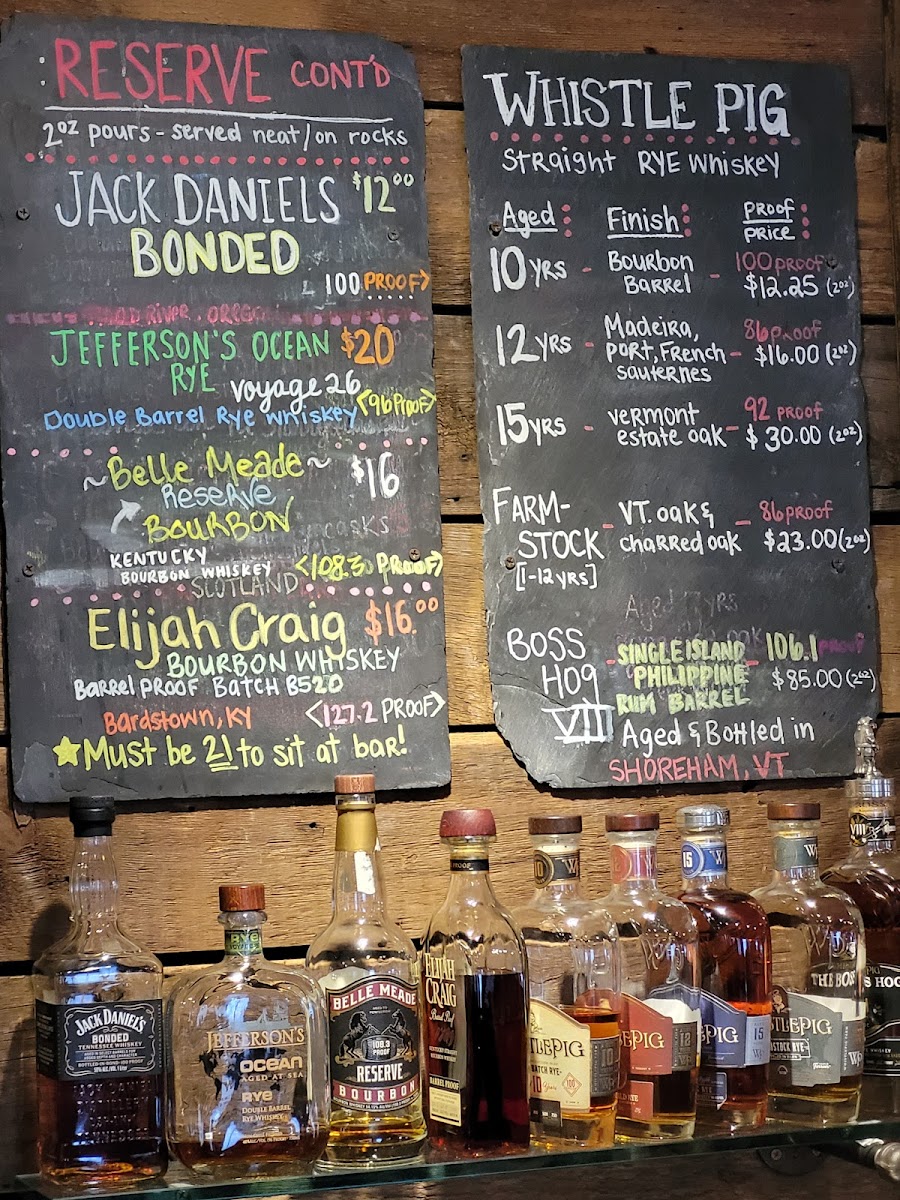 RESERVE CONT'D
2oz pours - served neat/on rocks
JACK DANIELS $12.00
BONDED
100 PROOF>
HOOD RIVER, OREGON
JEFFERSON'S OCEAN $20
RYE voyage 26
Double Barrel Rye whiskey <96 Proof>
~Belle Meade~ $16
Reserve
BOURBON
casks
KENTUCKY
BOURBON WHISKEY <108.3 PROOF>
SCOTLAND
Elijah Craig $16.00
BOURBON WHISKEY
Barrel PROOF BATCH B520
Bardstown, KY <127.2 PROOF>
Must be 21 to sit at bar!
WHISTLE PIG
Straight RYE Whiskey
Aged: Finish: PROOF PRICE:
10 YRS - Bourbon Barrel - 100 proof $12.25 (2oz)
12 YRS - Madeira, PORT, French sauternes - 86 proof $16.00 (2oz)
15 YRS - vermont estate oak - 92 proof $30.00 (2oz)
FARM-STOCK [1-12 yrs] - VT. oak & charred oak - 86 proof $23.00 (2oz)
Aged 17 yrs
BOSS HOG VII - SINGLE ISLAND PHILIPPINE RUM BARREL - 106.1 proof $85.00 (2oz)
Aged & Bottled in
SHOREHAM, VT
JACK DANIEL'S
BONDED
TENNESSEE WHISKEY
RYE
JEFFERSON'S
OCEAN
AGED AT SEA
RYE
DOUBLE BARREL
RYE WHISKEY
BELLE MEADE
108.3
PROOF
RESERVE
BOURBON
PROOF
ELIJAH
CRAIG
Barrel Proof
BARREL PROOF
10
TLEPIG
BATCH RYE
10 Years
100
10
EPIG
12
RYE
15
PIG
15
THE BOS
STOCK RYE
VIII
PIG
S HOG